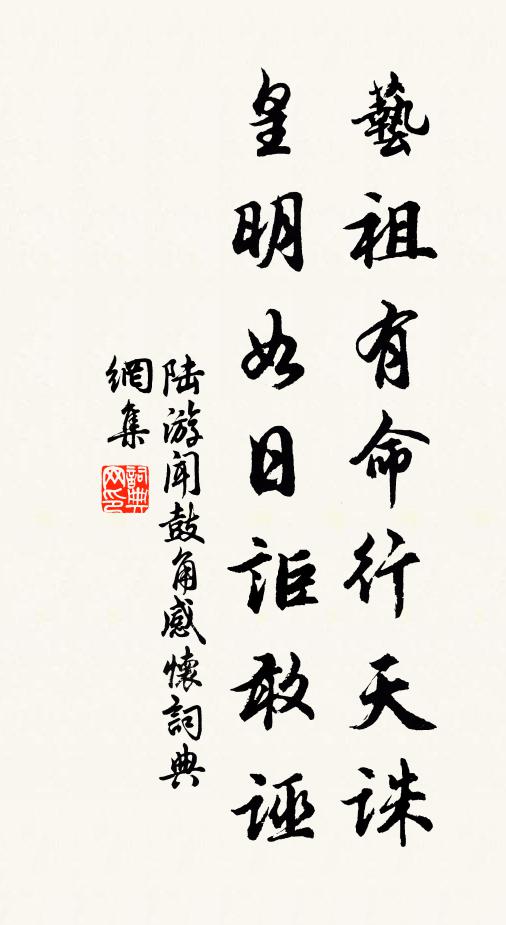 藝祖有命行天誅
皇明如日詎敢誣
陆游闻鼓角感懷詞典
網集
詞典網印